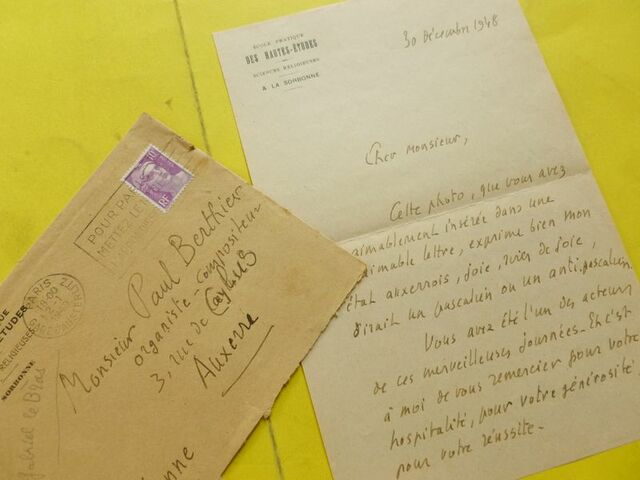 ÉCOLE PRATIQUE
DES HAUTES-ÉTUDES
SCIENCES RELIGIEUSES
A LA SORBONNE
30 Décembre 1948
Cher Monsieur,
Cette photo, que vous avez
aimablement insérée dans une
aimable lettre, exprime bien mon
état auxerrois, joie, rires de joie,
dirait un pascalin ou un anti-pascalin.
Vous avez été l'un des acteurs
de ces merveilleuses journées. Et c'est
à moi de vous remercier pour votre
hospitalité, pour votre générosité,
pour votre réussite.
POUR PA
METTEZ LE
RF
PARIS
ÉTUDES
RELIGIEUSES
SORBONNE
Monsieur Paul Berthier
organiste-compositeur
3, rue de Caylus
Auxerre
Gabriel le Bras
nne